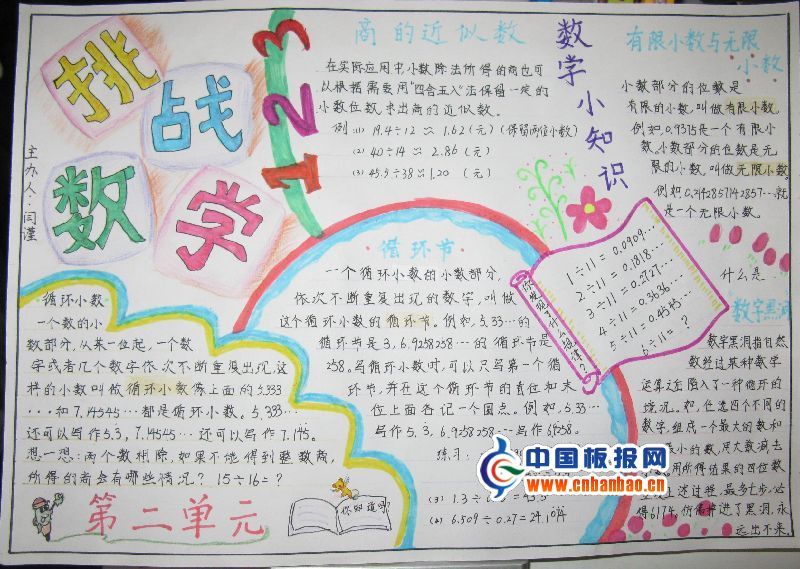 挑战
数学
主办人：闫瑾
123
商的近似数
在实际应用中小数除法所得的商也可
以根据需要用“四舍五入”法保留一定的
小数位数，求出商的近似数。
例 (1) 19.4÷12≈1.62(元)(保留两位小数)
(2) 40÷14≈2.86(元)
(3) 45.5÷38≈1.20(元)
数学小知识
有限小数与无限
小数
小数部分的位数是
有限的小数，叫做有限小数。
例如，0.9375是一个有限小
数。小数部分的位数是无
限的小数，叫做无限小数。
例如0.2142857142857…就
是一个无限小数。
你发现了什么规律？
1÷11=0.0909…
2÷11=0.1818…
3÷11=0.2727…
4÷11=0.3636…
5÷11=0.4545…
6÷11=?
循环节
一个循环小数的小数部分，
依次不断重复出现的数字，叫做
这个循环小数的循环节。例如，5.33…的
循环节是3，6.9258258…的循环节是
258。写循环小数时，可以只写第一个循
环节，并在这个循环节的首位和末
位上面各记一个圆点。例如，5.33…
写作5.3，6.9258258…写作6.9258。
练习：
(3) 1.3÷
(4) 6.509÷0.27=24.1
循环小数
一个数的小
数部分，从某一位起，一个数
字或者几个数字依次不断重复出现，这
样的小数叫做循环小数。像上面的5.333
…和7.14545…都是循环小数。5.333…
还可以写作5.3，7.14545…还可以写作7.145。
想一想：两个数相除，如果不能得到整数商，
所得的商会有哪些情况？15÷16=?
第二单元
你知道吗？
什么是
数字黑洞
数字黑洞指自然
数经过某种数学
运算之后陷入了一种循环的
境况。如，任选四个不同的
数字，组成一个最大的数和
最小的数，用大数减去
用所得结果的四位数
上述过程，最多七步，必
得6174，仿佛掉进了黑洞，永
远出不来。
中国板报网
www.cnbanbao.cn